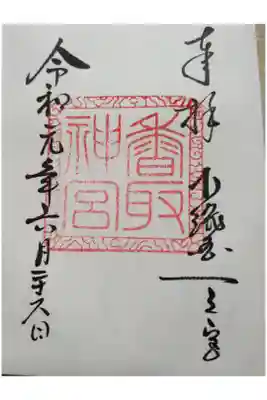 奉拝
下総国一之宮
香取
神宮
令和元年六月二十八日